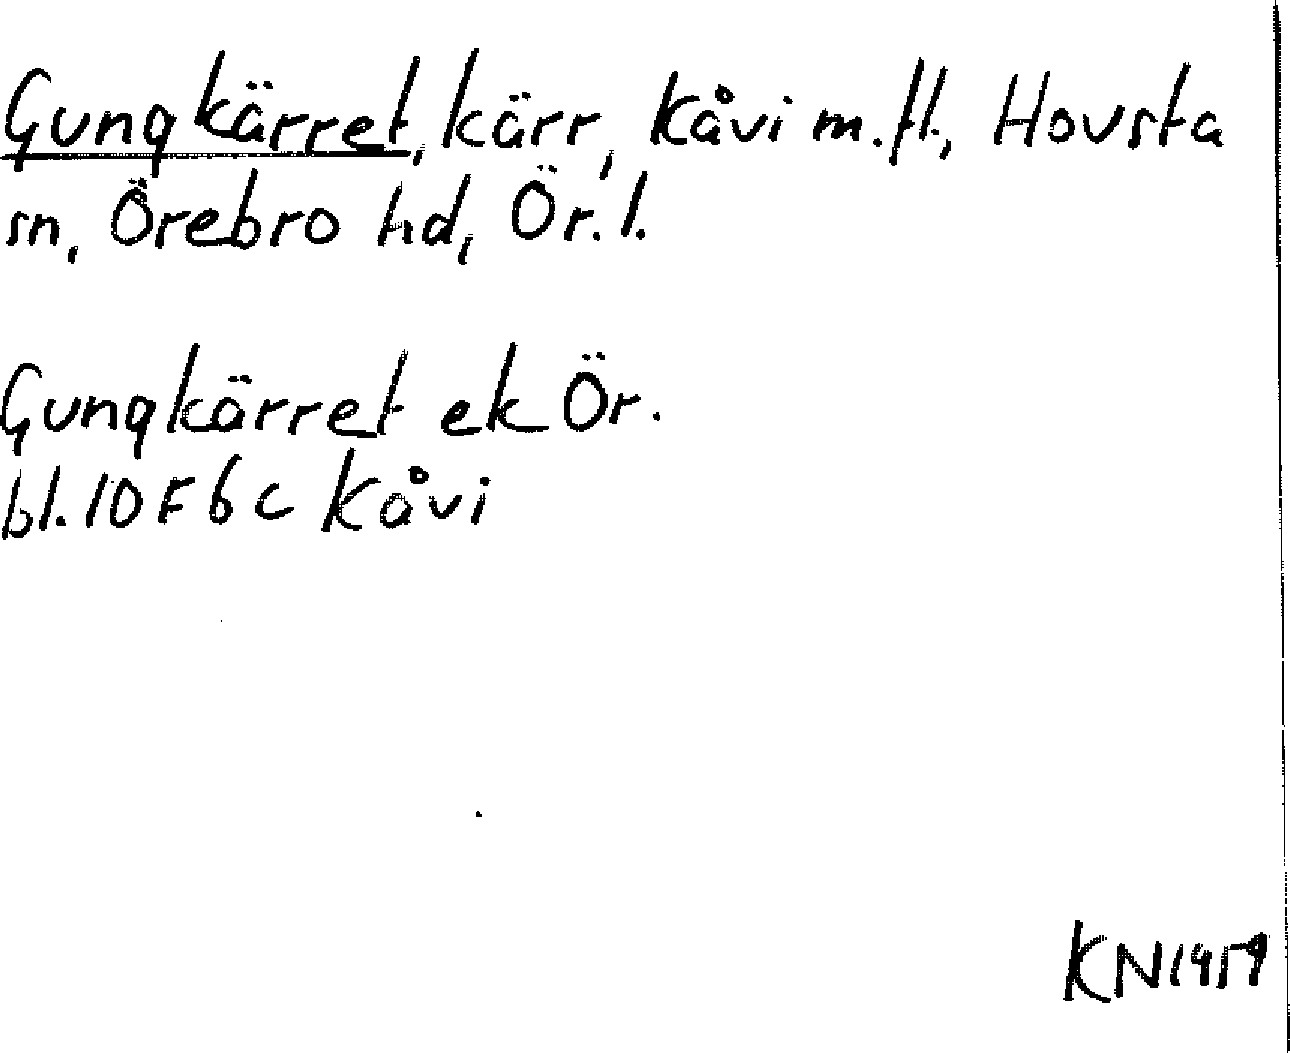 Gungkärret, kärr, Kåvi m.fl., Hovsta
sn, Örebro hd, Ör. l.
Gungkärret ek Ör.
bl. 10 F 6 c Kåvi
KN 1959